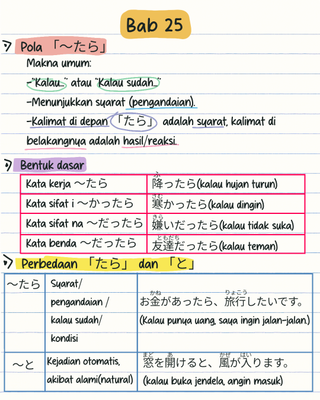 Bab 25
Pola 「〜たら」
Makna umum:
-"Kalau.." atau "Kalau sudah.."
-Menunjukkan syarat (pengandaian).
-Kalimat di depan 「たら」 adalah syarat, kalimat di
belakangnya adalah hasil/reaksi.
Bentuk dasar
Kata kerja 〜たら 降ったら(kalau hujan turun)
Kata sifat i 〜かったら 寒かったら(kalau dingin)
Kata sifat na 〜だったら 嫌いだったら(kalau tidak suka)
Kata benda 〜だったら 友達だったら(kalau teman)
Perbedaan 「たら」 dan 「と」
〜たら
Syarat/
pengandaian /
kalau sudah/
kondisi
お金があったら、旅行したいです。
(Kalau punya uang, saya ingin jalan-jalan.)
〜と
Kejadian otomatis,
akibat alami(natural)
窓を開けると、風が入ります。
(kalau buka jendela, angin masuk)